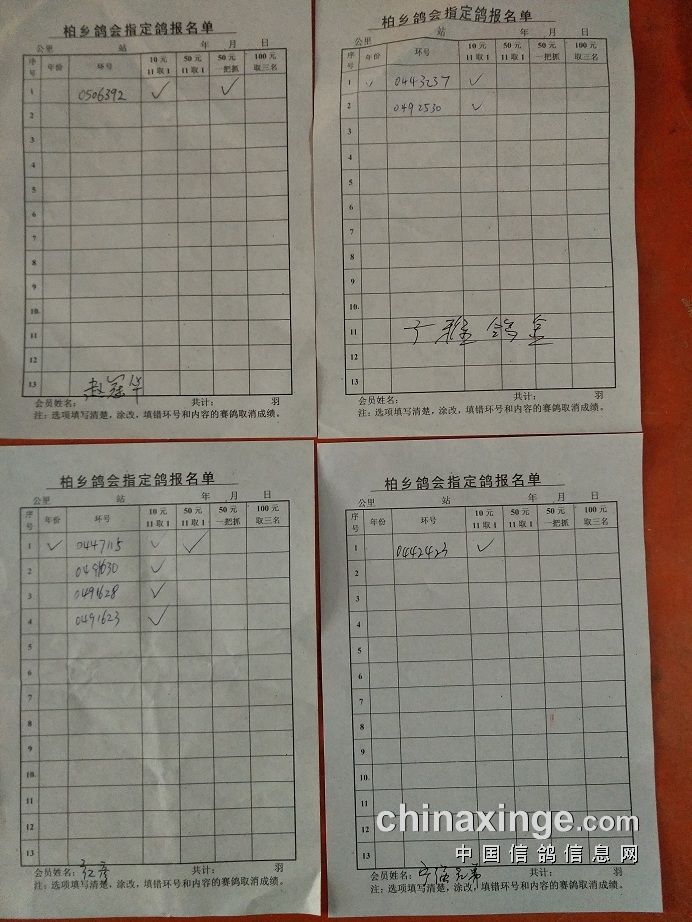 柏乡鸽会指定鸽报名单
公里 站 年 月 日
序号 年份 环号 10元11取1 50元11取1 50元一把抓 100元取三名
1 0506392 ✓ ✓
2
3
4
5
6
7
8
9
10
11
12
13
赵冠华
会员姓名: 共计: 羽
注:选项填写清楚,涂改,填错环号和内容的赛鸽取消成绩。
柏乡鸽会指定鸽报名单
公里 站 年 月 日
序号 年份 环号 10元11取1 50元11取1 50元一把抓 100元取三名
1 ✓ 0443237 ✓
2 0492530 ✓
3
4
5
6
7
8
9
10
11
12
13
会员姓名: 共计: 羽
注:选项填写清楚,涂改,填错环号和内容的赛鸽取消成绩。
柏乡鸽会指定鸽报名单
公里 站 年 月 日
序号 年份 环号 10元11取1 50元11取1 50元一把抓 100元取三名
1 ✓ 0447115 ✓ ✓
2 0491630 ✓
3 0491628 ✓
4 0491623 ✓
5
6
7
8
9
10
11
12
13
会员姓名: 红彦 共计: 羽
注:选项填写清楚,涂改,填错环号和内容的赛鸽取消成绩。
柏乡鸽会指定鸽报名单
公里 站 年 月 日
序号 年份 环号 10元11取1 50元11取1 50元一把抓 100元取三名
1 0442423 ✓
2
3
4
5
6
7
8
9
10
11
12
13
会员姓名: 共计: 羽
注:选项填写清楚,涂改,填错环号和内容的赛鸽取消成绩。
chinaxinge.com
中国信鸽信息网